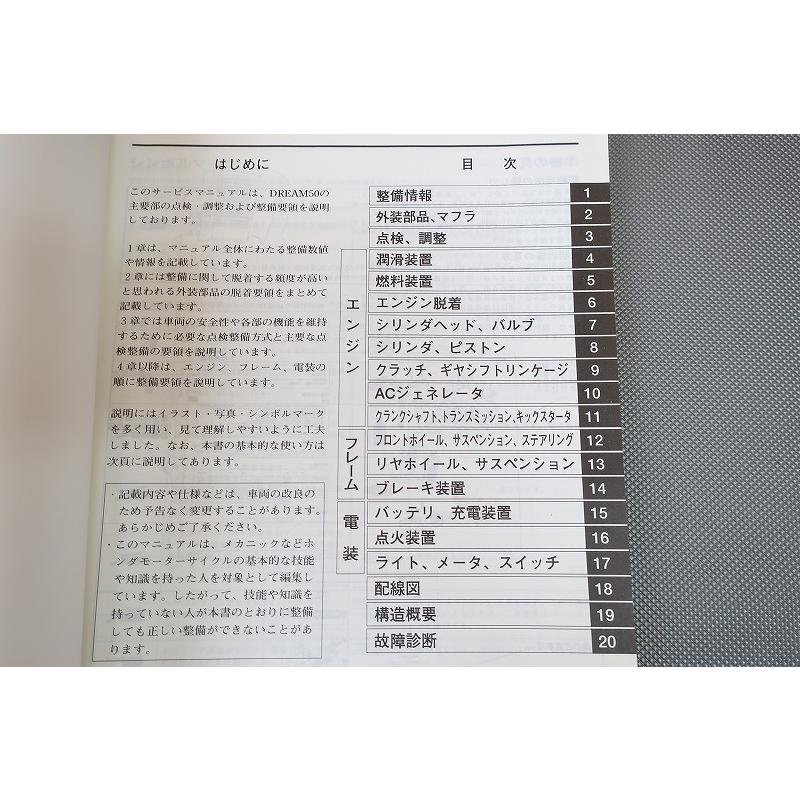 はじめに
このサービスマニュアルは、DREAM50の
主要部の点検・調整および整備要領を説明
しております。
1章は、マニュアル全体にわたる整備数値
や情報を記載しています。
2章には整備に関して脱着する頻度が高い
と思われる外装部品の脱着要領をまとめて
記載しています。
3章では車両の安全性や各部の機能を維持
するために必要な点検整備方式と主要な点
検整備の要領を説明しています。
4章以降は、エンジン、フレーム、電装の
順に整備要領を説明しています。
説明にはイラスト・写真・シンボルマーク
を多く用い、見て理解しやすいように工夫
しました。なお、本書の基本的な使い方は
次頁に説明してあります。
・記載内容や仕様などは、車両の改良の
ため予告なく変更することがあります。
あらかじめご了承ください。
・このマニュアルは、メカニックなどホ
ンダモーターサイクルの基本的な技能
や知識を持った人を対象として編集し
ています。したがって、技能や知識を
持っていない人が本書のとおりに整備
しても正しい整備ができないことがあ
ります。
目 次
整備情報 1
外装部品、マフラ 2
点検、調整 3
エンジン
潤滑装置 4
燃料装置 5
エンジン脱着 6
シリンダヘッド、バルブ 7
シリンダ、ピストン 8
クラッチ、ギヤシフトリンケージ 9
ACジェネレータ 10
クランクシャフト、トランスミッション、キックスタータ 11
フレーム
フロントホイール、サスペンション、ステアリング 12
リヤホイール、サスペンション 13
ブレーキ装置 14
電装
バッテリ、充電装置 15
点火装置 16
ライト、メータ、スイッチ 17
配線図 18
構造概要 19
故障診断 20